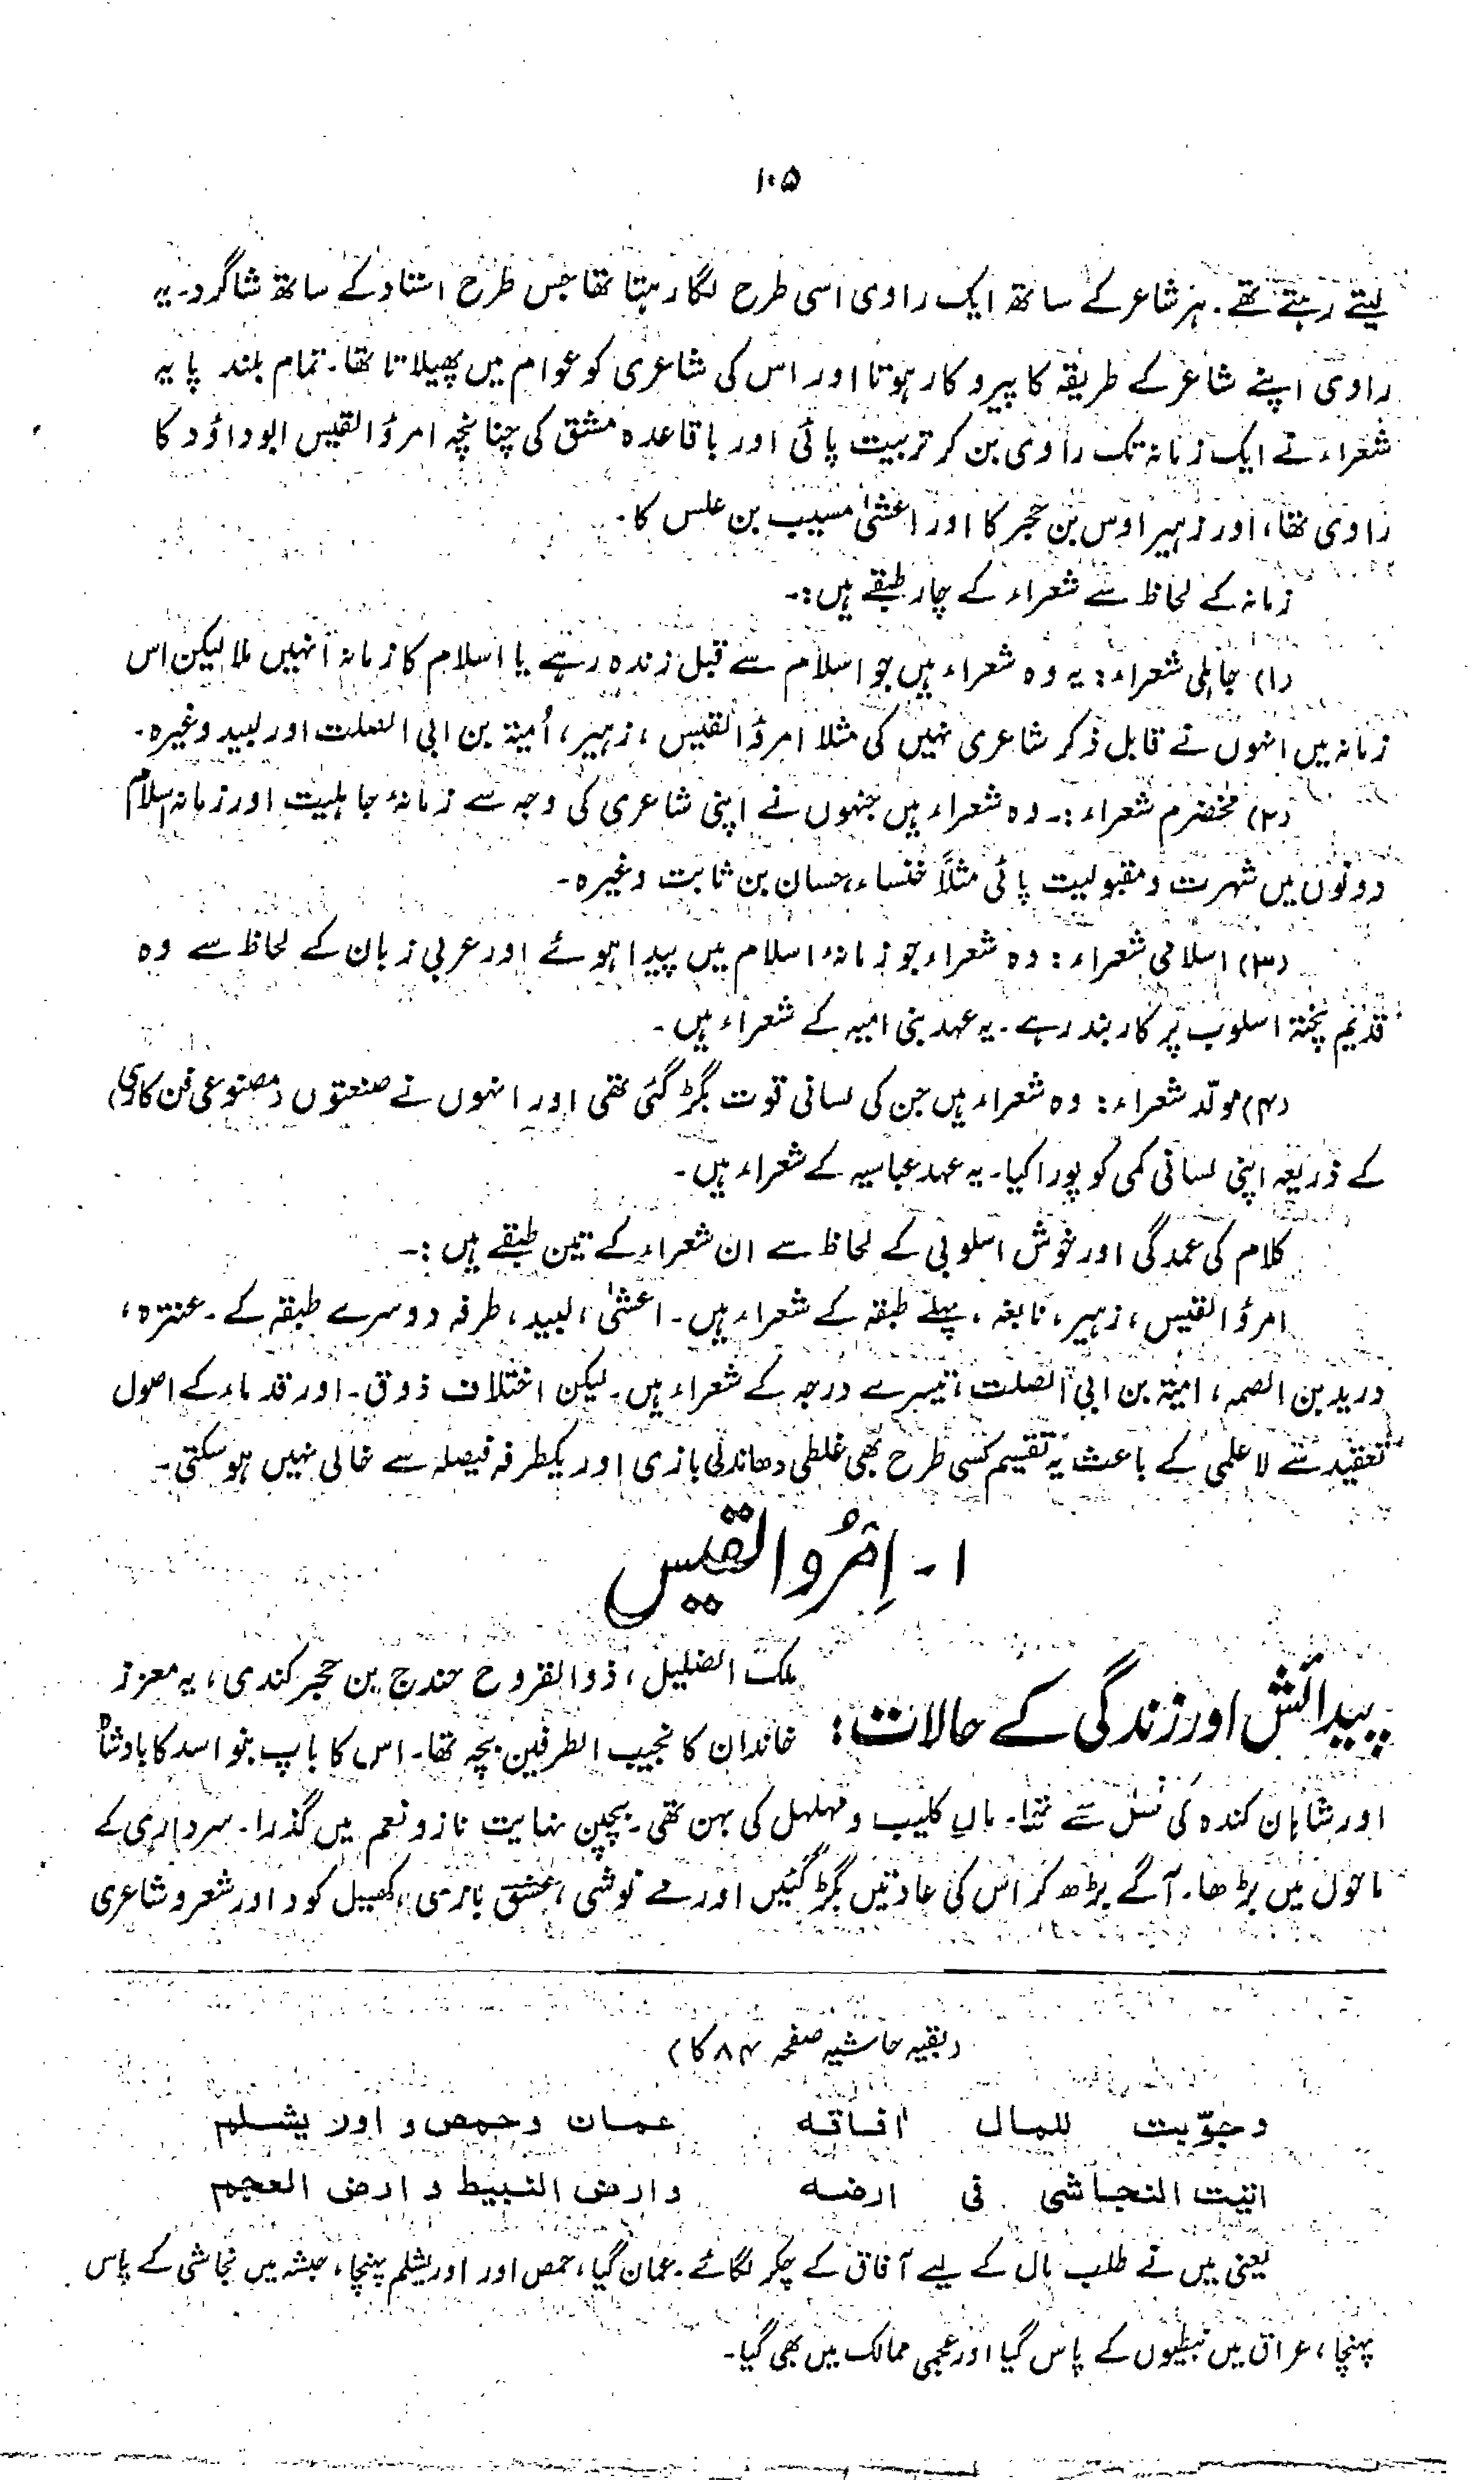 ۱۰۵
لیتے رہتے تھے. ہر شاعر کے ساتھ ایک راوی اسی طرح لگا رہتا تھا جس طرح استاد کے ساتھ شاگرد۔ یہ
راوی اپنے شاعر کے طریقہ کا پیرو کار ہوتا اور اس کی شاعری کو عوام میں پھیلاتا تھا۔ تمام بلند پایہ
شعراء نے ایک زمانہ تک راوی بن کر تربیت پائی اور باقاعدہ مشق کی چنانچہ امرؤ القیس ابوداؤد کا
راوی تھا، اور زہیر اوس بن حجر کا اور اعشیٰ مسیب بن علس کا۔
زمانہ کے لحاظ سے شعراء کے چار طبقے ہیں:۔
(۱) جاہلی شعراء: یہ وہ شعراء ہیں جو اسلام سے قبل زندہ رہے یا اسلام کا زمانہ انہیں ملا لیکن اس
زمانہ میں انہوں نے قابل ذکر شاعری نہیں کی مثلا امرؤ القیس، زہیر، اُمیّۃ بن ابی الصلت اور لبید وغیرہ۔
(۲) مخضرم شعراء:۔ وہ شعراء ہیں جنہوں نے اپنی شاعری کی وجہ سے زمانۂ جاہلیت اور زمانہ اسلام
دونوں میں شہرت و مقبولیت پائی مثلاً خنساء، حسان بن ثابت وغیرہ۔
(۳) اسلامی شعراء: وہ شعراء جو زمانۂ اسلام میں پیدا ہوئے اور عربی زبان کے لحاظ سے وہ
قدیم پختہ اسلوب پر کاربند رہے۔ یہ عہد بنی امیہ کے شعراء ہیں۔
(۴) مولّد شعراء: وہ شعراء ہیں جن کی لسانی قوت بگڑ گئی تھی اور انہوں نے صنعتوں (مصنوعی فن کاری)
کے ذریعہ اپنی لسانی کمی کو پورا کیا۔ یہ عہد عباسیہ کے شعراء ہیں۔
کلام کی عمدگی اور خوش اسلوبی کے لحاظ سے ان شعراء کے تین طبقے ہیں:۔
امرؤ القیس، زہیر، نابغہ، پہلے طبقہ کے شعراء ہیں۔ اعشیٰ، لبید، طرفہ دوسرے طبقہ کے۔ عنترہ،
درید بن الصمہ، امیّۃ بن ابی الصلت، تیسرے درجہ کے شعراء ہیں۔ لیکن اختلاف ذوق۔ اور قدماء کے اصول
تنقید سے لاعلمی کے باعث یہ تقسیم کسی طرح بھی غلطی دھاندلی بازی اور یکطرفہ فیصلہ سے خالی نہیں ہوسکتی۔
۱۔ اِمْرُو القیس
پیدائش اور زندگی کے حالات: ملک الضلیل، ذوالقروح حندج بن حجر کندی، یہ معزز
خاندان کا نجیب الطرفین بچہ تھا۔ اس کا باپ بنو اسد کا بادشاہ
اور شاہان کندہ کی نسل سے تھا۔ ماں کلیب و مہلہل کی بہن تھی۔ بچپن نہایت ناز و نعم میں گذرا۔ سرداری کے
ماحول میں بڑھا۔ آگے بڑھ کر اس کی عادتیں بگڑ گئیں اور مے نوشی، عشق بازی، کھیل کود اور شعر و شاعری
(بقیہ حاشیہ صفحہ ۸۴ کا)
وجوّبت للمال آفاقه عمان وحمص و اورِیشلم
اتیت النجاشی فی ارضه وارض النبیط و ارض العجم
یعنی میں نے طلب مال کے لیے آفاق کے چکر لگائے۔ عمان گیا، حمص اور اوریشلم پہنچا، حبشہ میں نجاشی کے پاس
پہنچا، عراق میں نبطیوں کے پاس گیا اور عجمی ممالک میں بھی گیا۔